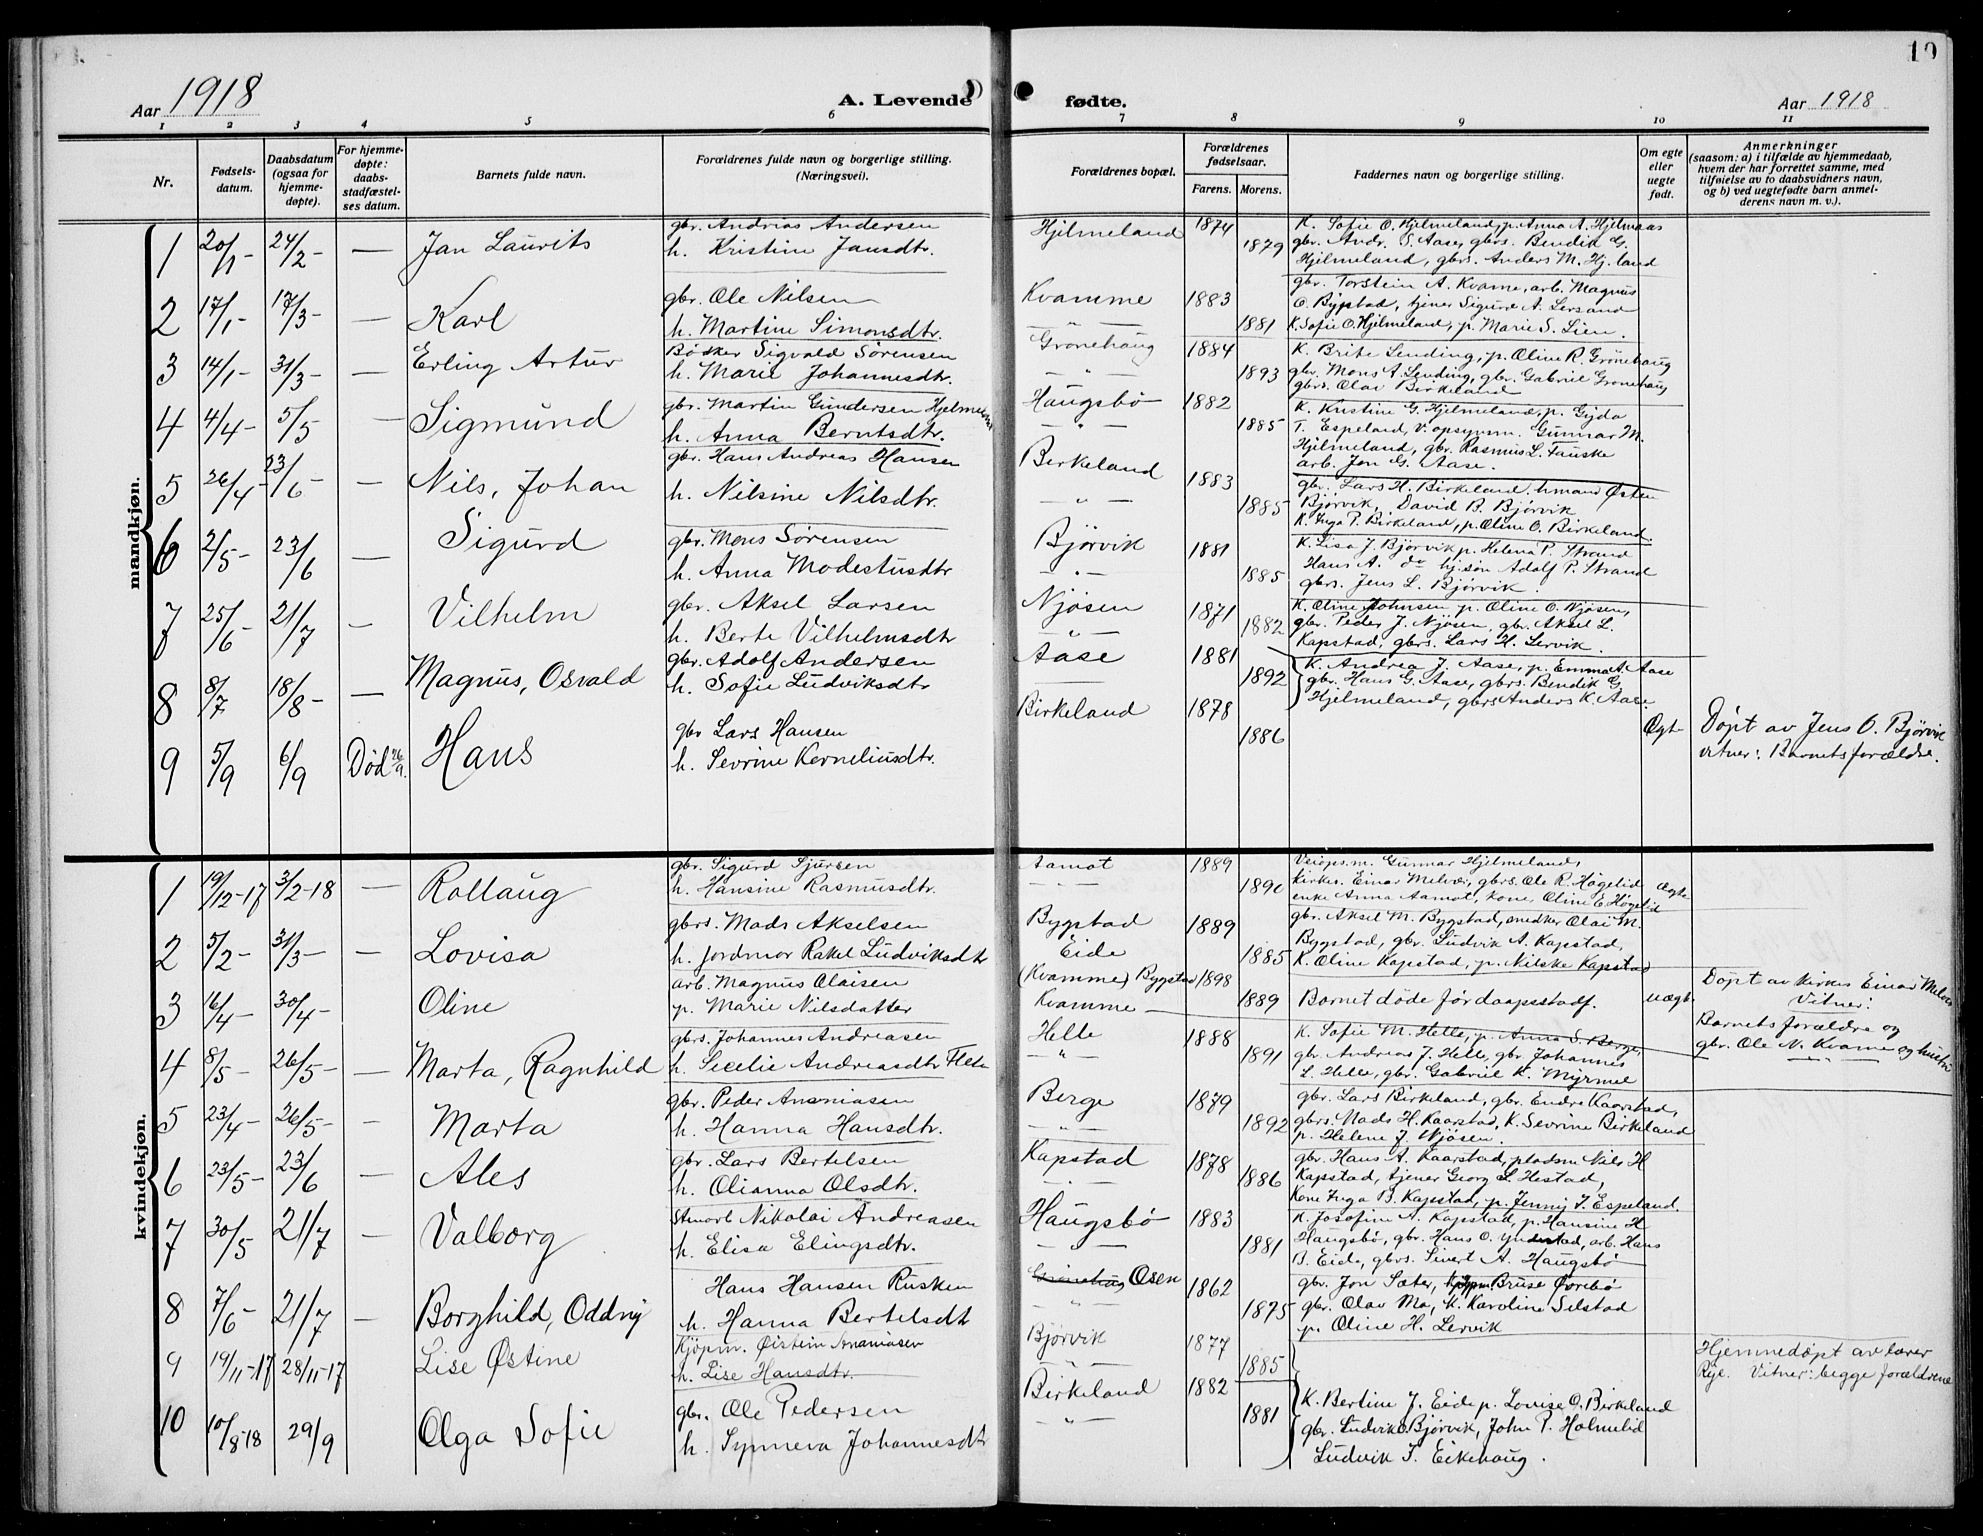 10
Aar 1918
A. Levende fødte.
Aar 1918
1 2 3 4 5 6 7 8 9 10 11
Nr.
Fødsels-
datum.
Daabsdatum
(ogsaa for
hjemme-
døpte).
For hjemme-
døpte:
daabs-
stadfæstel-
ses datum.
Barnets fulde navn.
Forældrenes fulde navn og borgerlige stilling.
(Næringsvei).
Forældrenes bopæl.
Forældrenes
fødselsaar.
Farens. Morens.
Faddernes navn og borgerlige stilling.
Om egte
eller
uegte
født.
Anmerkninger
(saasom: a) i tilfælde av hjemmedaab,
hvem der har forrettet samme, med
tilføielse av to daabsvidners navn,
og b) ved uegtefødte barn anmel-
derens navn m. v.).
mandkjøn.
1 20/1- 24/2- — Jan Laurits
gbr. Andrias Andersen
h. Kristine Jansdtr.
Hjelmeland 1874 1879
K. Sofie O. Hjelmeland, p. Anna A. Hjelmaas
gbr. Andr. S. Aase, gbrs. Bendik G.
Hjelmeland, gbrs. Anders M. Hj.land
2 17/1- 17/3- — Karl
gbr. Ole Nilsen
h. Martine Simonsdtr.
Kvamme 1883 1881
gbr. Torstein A. Kvame, arb. Magnus
O. Bygstad, tjener Sigurd A. Lersand
K. Sofie O. Hjelmeland, p. Marie S. Lien.
3 14/1- 31/3- — Erling Artur
Bøsker Sigvald Sørensen
h. Marie Johannesdtr.
Grønehaug 1884 1893
K. Brite Sending, p. Oline R. Grønehaug
gbr. Mons A. Sending, gbr. Gabriel Grønehaug
gbrs. Olai Birkeland
4 4/4- 5/5 — Sigmund
gbr. Martin Gundersen Hjelmeland
h. Anna Berntsdtr.
Haugsbø 1882 1885
K. Kristine G. Hjelmeland, p. Gyda
T. Espeland, v. opsynsm. Gunnar M.
Hjelmeland, gbr. Rasmus L. Fauske
arb. Jon G. Aase.
5 26/4- 23/6- — Nils, Johan
gbr. Hans Andreas Hansen
h. Nilsine Nilsdtr.
Birkeland 1883 1885
gbr. Lars H. Birkeland, hmand Østen
Bjørvik, David B. Bjørvik
K. Inga P. Birkeland, p. Oline O. Birkeland.
6 2/5- 23/6 — Sigurd
gbr. Mons Sørensen
h. Anna Modestusdtr
Bjørvik 1881 1885
K. Lisa J. Bjørvik p. Helena P. Strand
Hans A. do hj.søn Adolf P. Strand
gbrs. Jens L. Bjørvik.
7 25/6 21/7 — Vilhelm
gbr. Aksel Larsen
h. Berte Vilhelmsdtr
Njøsen 1871 1882
K. Oline Johnsen p. Oline O. Njøsen,
gbr. Peder J. Njøsen, gbr. Aksel L.
Kapstad, gbrs. Lars H. Lervik.
8 8/7 18/8- — Magnus, Osvald
gbr. Adolf Andersen
h. Sofie Ludviksdtr
Aase 1881 1892
K. Andrea J. Aase, p. Emma A. Aase
gbr. Hans G. Aase, gbrs. Bendik G.
Hjelmeland, gbrs Anders K. Aase.
9 5/9 6/9 Død 26/9. Hans
gbr Lars Hansen
h. Sevrine Korneliusdtr.
Birkeland 1878 1886
Ægt. Døpt av Jens O. Bjørvik
vitner: Barnets forældre.
kvindekjøn.
1 19/12-17 3/2-18 — Rollaug
gbr. Sigurd Sjursen
h. Hansine Rasmusdtr.
Aamot 1889 1890
Veiops.m. Gunnar Hjelmeland,
kirkes. Einar Melvær, gbrs. Ole R. Høgelid
enke Anna Aamot, kone Oline E Høgelid
Ægte
2 5/2- 31/3- — Lovisa
gbrs. Mads Akselsen
h. jordmor Rakel Ludviksdtr
Bygstad
Eide 1889 1885
gbr. Aksel M. Bygstad, snedker Olai M.
Bygstad, gbr. Ludvik A. Kapstad,
K. Oline Kapstad, p. Nilske Kapstad
3 16/4- 30/4- Oline
arb. Magnus Olaisen
p. Marie Nilsdatter
(Kvamme) Bygstad 1898
Kvamme 1889
Barnet døde før daapsstadf. uægt.
Døpt av kirkes Einar Melvær
Vitner:
Barnets forældre og
gbr. Ole N. Kvame og hustru
4 8/5- 26/5- — Marta, Ragnhild
gbrs. Johannes Andreasen
h. Secelie Andreasdtr
Helle 1888 1891
K. Sofie M. Helle, p. Anna S. Berge,
gbr. Andreas J. Helle, gbr. Johannes
L. Helle, gbr. Gabriel K. Myrmel
5 23/4- 26/5- — Marta
gbr. Peder Ananiasen
h. Hanna Hansdtr.
Berge 1879 1892
gbr. Lars Birkeland, gbr. Endre Kaarstad,
gbrs. Mads H. Kaarstad, K. Sevrine Birkeland
p. Helene J. Njøsen.
6 23/5- 23/6 — Ales
gbr. Lars Bertelsen
h. Olianna Olsdtr.
Kapstad 1878 1886
gbr. Hans A. Kaarstad, pladsm Nils H
Kapstad, tjener Georg L. Hestad,
Kone Inga B. Kapstad, p. Jenny I. Espeland.
7 30/5 21/7 — Valborg
Nikolai Andreasen
h. Elisa Elingsdtr.
Haugsbø 1883 1881
K. Josofine A. Kapstad, p. Hansine H.
Haugsbø, gbr. Hans O. Yndestad, arb. Hans
B. Eide, gbrs. Sivert A. Haugsbø
8 7/6- 21/7 — Borghild, Oddny
Hans Hansen Rusken
h. Hanna Bertelsdt
Grønehaug Osen 1862 1875
gbr. Jon Sæter, BruseØrebø
gbr. Olav Mo, K. Karoline Selstad
p. Oline H. Lervik
9 19/11-17 28/11-17 Lise Østine
Kjøpm. Øistein Ananiasen
h. Lise Hansdtr.
Bjørvik 1877 1885
Hjemmedøpt av lærer
Rye. Vitner: begge forældrene
10 10/8-18 29/9 Olga Sofie
gbr. Ole Pedersen
h. Synneva Johannesdtr
Birkeland 1882 1881
K. Bertine J. Eide p. Lovise O. Birkeland
gbr. Ludvik Bjørvik, John P. Holmelid
Ludvik I. Eikehaug.